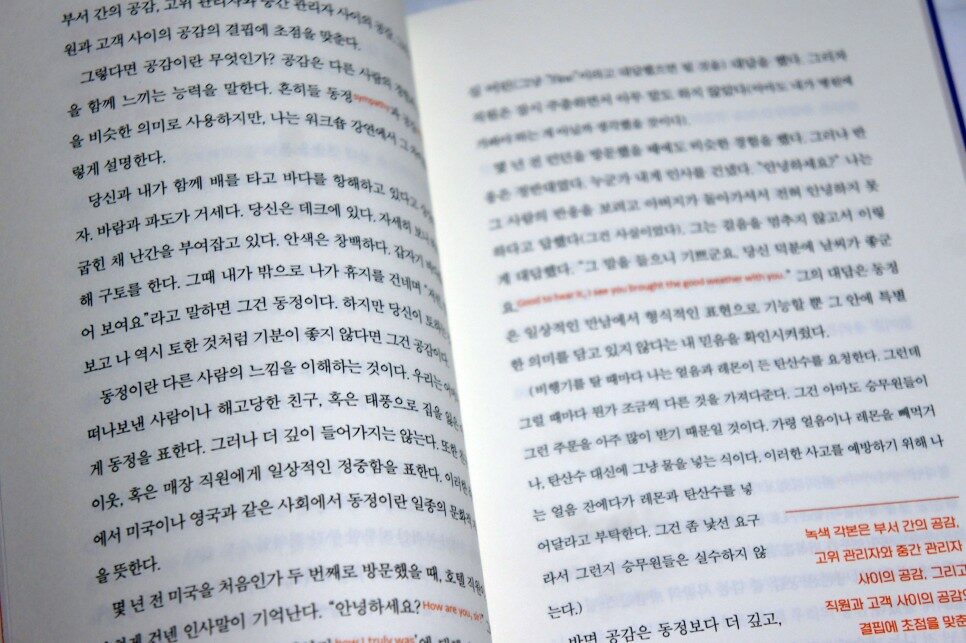 부서 간의 공감, 고위 관리자와 중간 관리자 사이의 공감,
원과 고객 사이의 공감의 결핍에 초점을 맞춘다.
그렇다면 공감이란 무엇인가? 공감은 다른 사람의
을 함께 느끼는 능력을 말한다. 흔히들 동정sympathy과
을 비슷한 의미로 사용하지만, 나는 워크숍 강연에서 그
렇게 설명한다.
당신과 내가 함께 배를 타고 바다를 항해하고 있다고
자. 바람과 파도가 거세다. 당신은 데크에 있다. 자세히 보니
굽힌 채 난간을 부여잡고 있다. 안색은 창백하다. 갑자기
해 구토를 한다. 그때 내가 밖으로 나가 휴지를 건네며
어 보여요”라고 말하면 그건 동정이다. 하지만 당신이 토하는
보고 나 역시 토한 것처럼 기분이 좋지 않다면 그건 공감이다.
동정이란 다른 사람의 느낌을 이해하는 것이다. 우리는
떠나보낸 사람이나 해고당한 친구, 혹은 태풍으로 집을 잃은
게 동정을 표한다. 그러나 더 깊이 들어가지는 않는다. 또한
이웃, 혹은 매장 직원에게 일상적인 정중함을 표한다. 이러한
에서 미국이나 영국과 같은 사회에서 동정이란 일종의 문화적
을 뜻한다.
몇 년 전 미국을 처음인가 두 번째로 방문했을 때, 호텔 직원이
건넨 인사말이 기억난다. “안녕하세요?How are you, sir?”
how I truly was’에 대해
십 어린(그냥 “fine”이라고 대답했으면 될 것을) 대답을 했다. 그러자
직원은 잠시 주춤하면서 아무 말도 하지 않았다(아마도 내가 병원에
가봐야 하는 게 아닌지 생각했을 것이다).
몇 년 전 런던을 방문했을 때에도 비슷한 경험을 했다. 그러나 반
응은 정반대였다. 누군가 내게 인사를 건넸다. “안녕하세요?” 나는
그 사람의 반응을 보려고 아버지가 돌아가셔서 전혀 안녕하지 못
하다고 답했다(그건 사실이었다). 그는 걸음을 멈추지 않고서 이렇
게 대답했다. “그 말을 들으니 기쁘군요. 당신 덕분에 날씨가 좋군
요.Good to hear it, I see you brought the good weather with you.” 그의 대답은 동정
은 일상적인 만남에서 형식적인 표현으로 기능할 뿐 그 안에 특별
한 의미를 담고 있지 않다는 내 믿음을 확인시켜줬다.
(비행기를 탈 때마다 나는 얼음과 레몬이 든 탄산수를 요청한다. 그런데
그럴 때마다 뭔가 조금씩 다른 것을 가져다준다. 그건 아마도 승무원들이
그런 주문을 아주 많이 받기 때문일 것이다. 가령 얼음이나 레몬을 빼먹거
나, 탄산수 대신에 그냥 물을 넣는 식이다. 이러한 사고를 예방하기 위해 나
는 얼음 잔에다가 레몬과 탄산수를 넣
어달라고 부탁한다. 그건 좀 낯선 요구
라서 그런지 승무원들은 실수하지 않
는다.)
반면 공감은 동정보다 더 깊고,
녹색 각본은 부서 간의 공감,
고위 관리자와 중간 관리자
사이의 공감, 그리고
직원과 고객 사이의 공감의
결핍에 초점을 맞춘